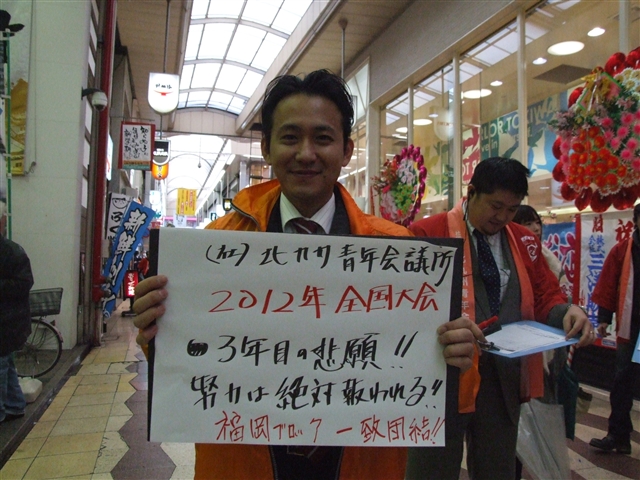 (社)北九州青年会議所
2012年 全国大会
●3年目の悲願!!
努力は絶対報われる!!
福岡ブロック一致団結!!